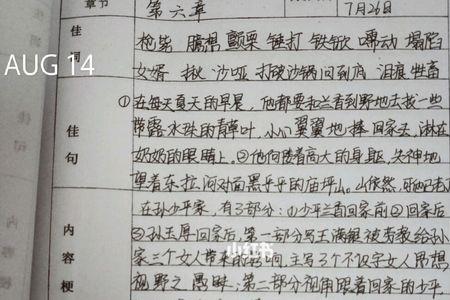 章节
第六章
7月26日
佳词
枪毙 臆想 颤栗 锤打 铁锨 嚅动 塌陷
AUG 14
女婿 揪 沙哑 打破沙锅问到底 泪痕 牲畜
佳句
①在每天夏天的早晨,他都要和兰香到野地去找一些
带露水珠的青草叶,小心翼翼地捧回家去,淋在
奶奶的眼睛上。②他佝偻着高大的身躯,失神地
望着东拉河对面黑乎乎的庙坪山。山依然,可他已
内容梗
在孙少平家,有3部分:①少平兰香回家前②回家后
③孙玉厚回家后。第一部分写王满银被劳教给孙
家三个女人带来的影响,主写3个不识字女人思想
视野之愚昧;第二部分视角跟着回家的少平
小红书